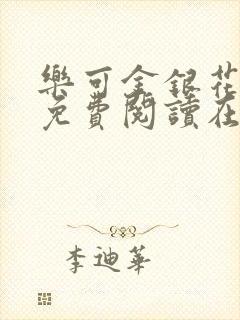 樂可金銀花
免費閱讀在
李迪華